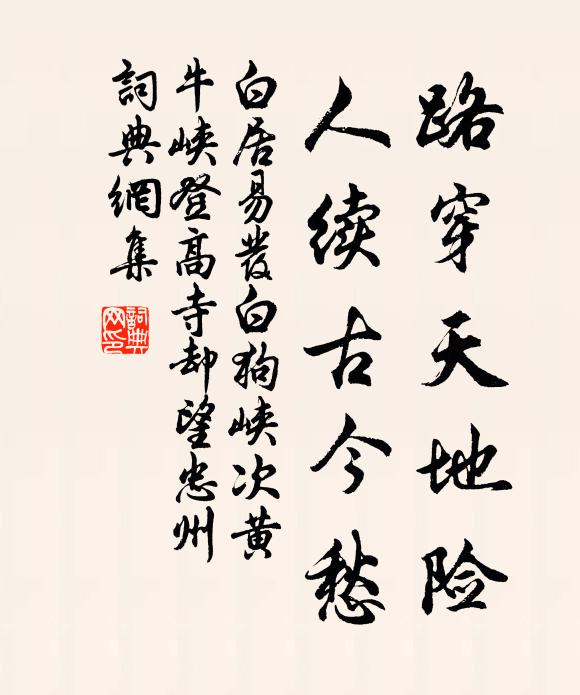 路穿天地险
人续古今愁
白居易發白狗峡次黄
牛峡登高寺却望忠州
詞典網集
詞典网印